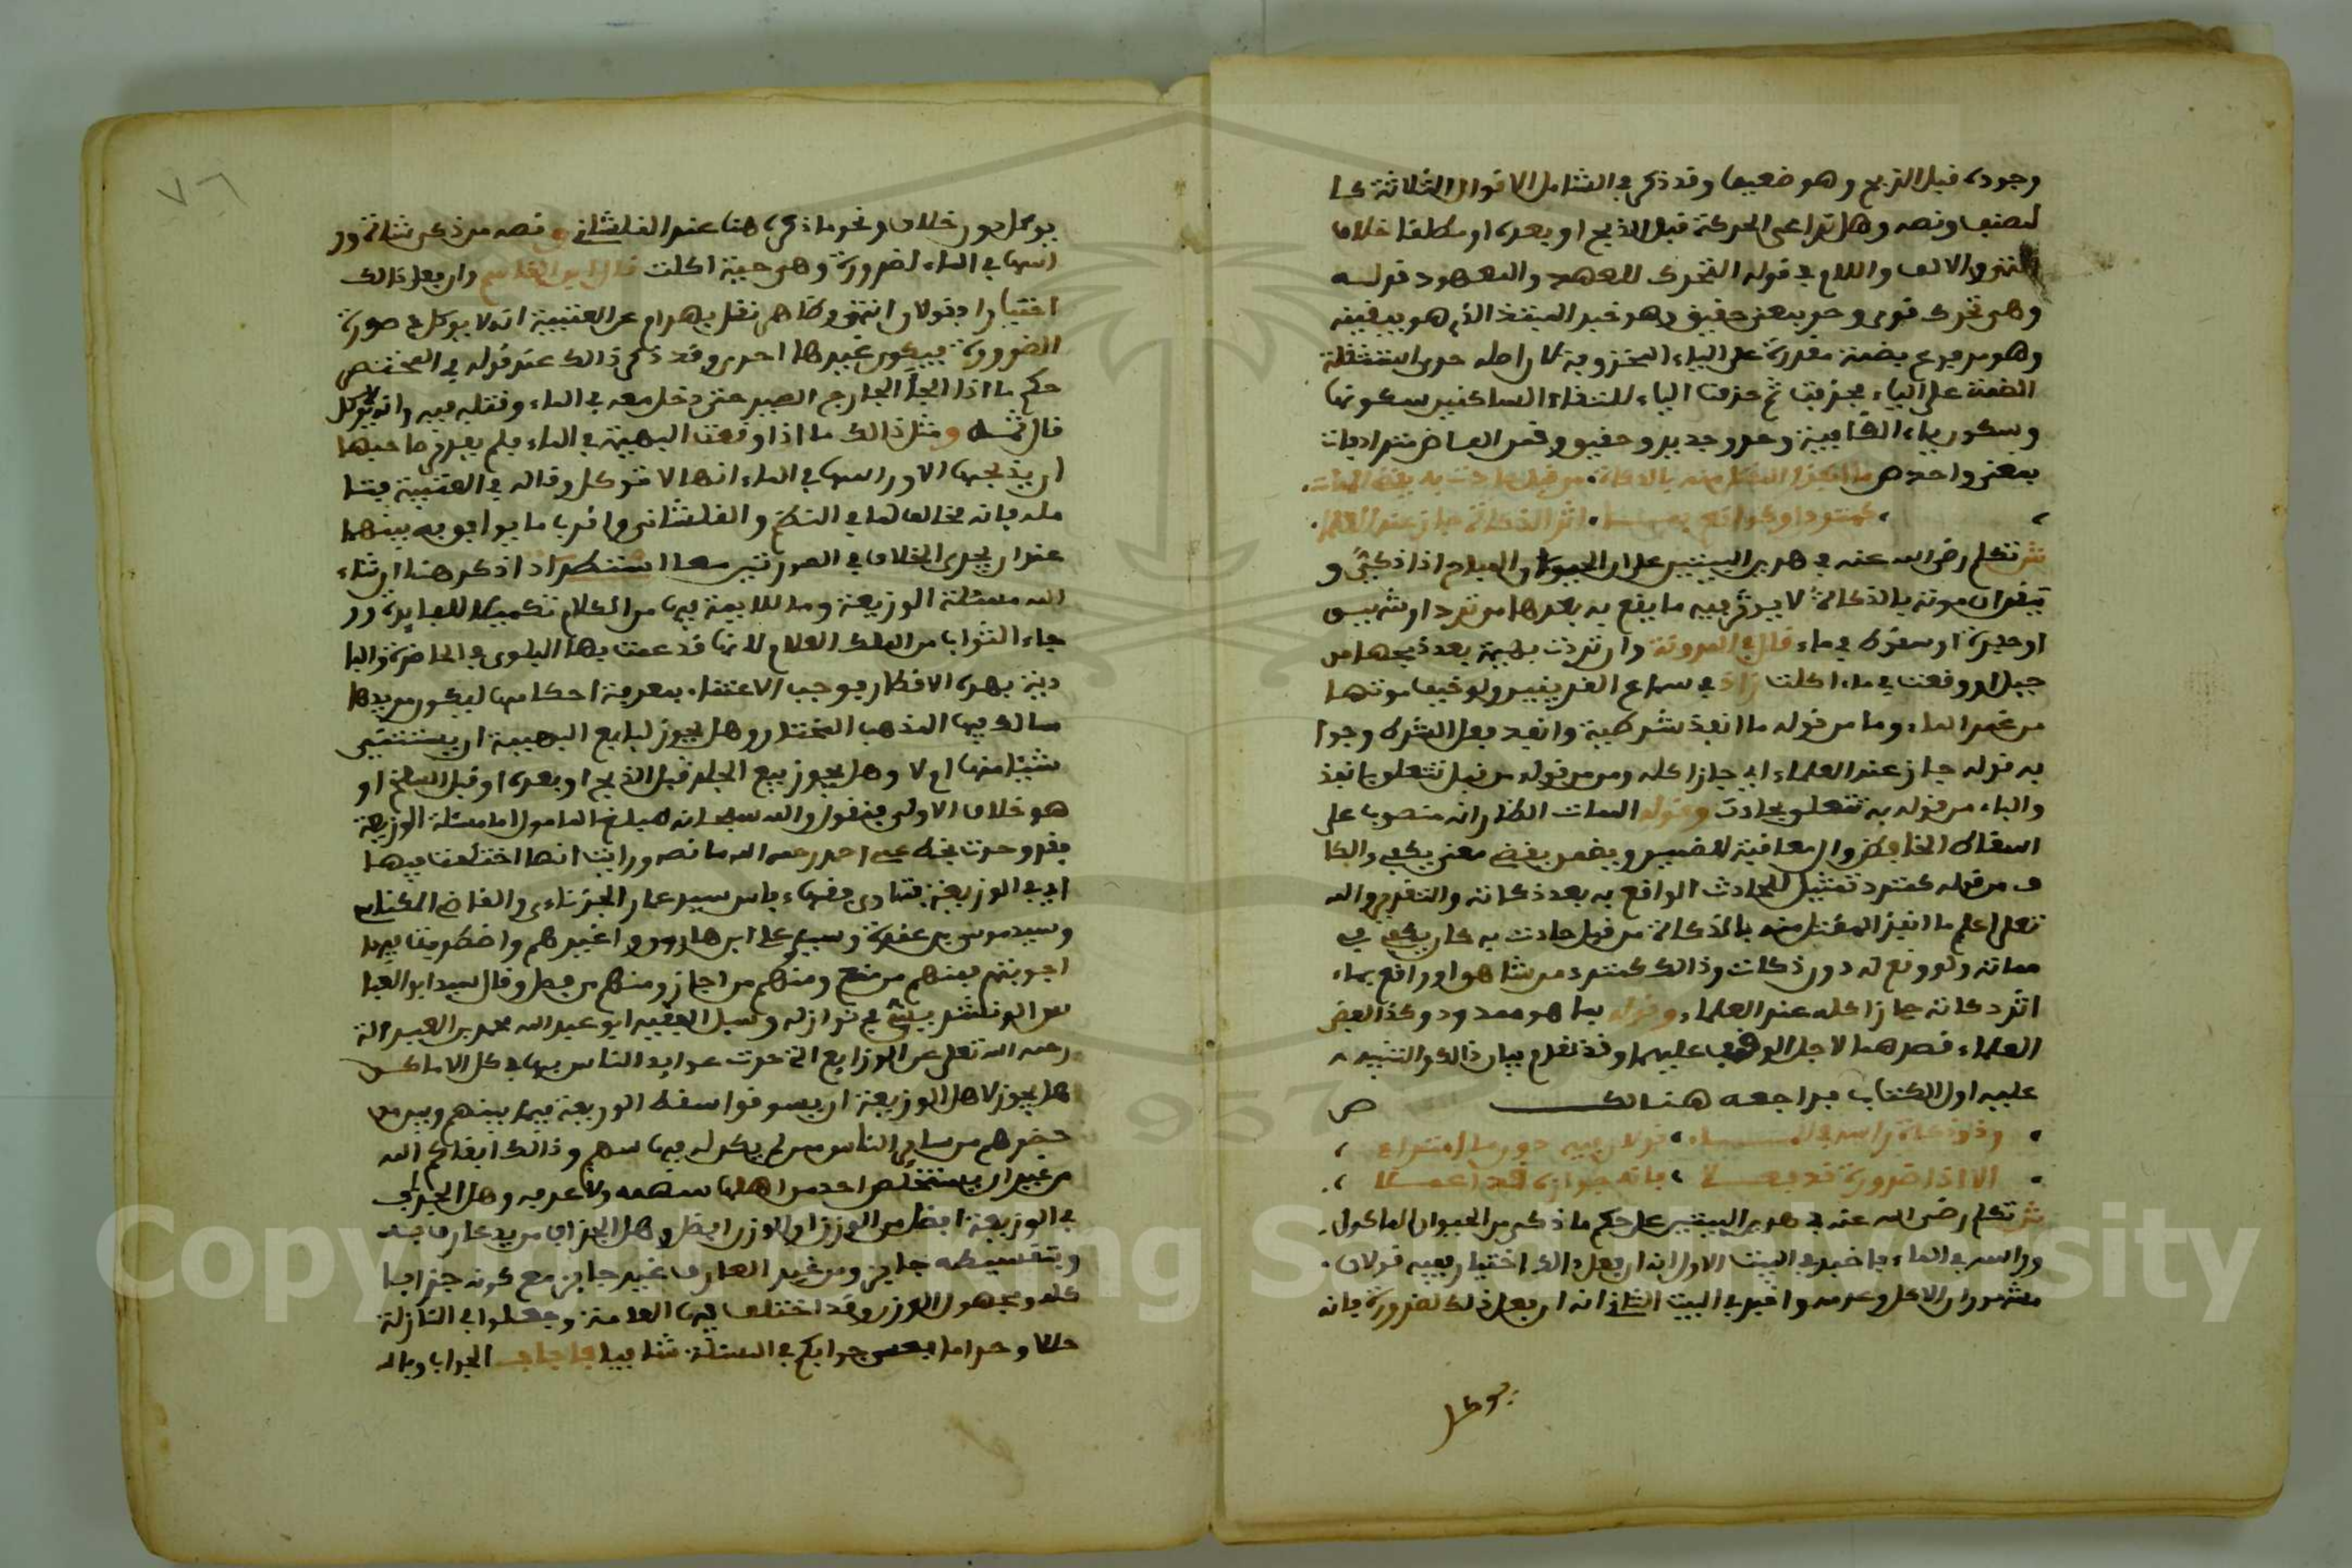 وجوده قبل الذبح وهو ضعيف وقد ذكر في الشامل الاقوال الثلاثة كما
لمصنف ونصه وهل تراعى الحركة قبل الذبح او بعده او مطلقا خلاف
انتهى الالف واللام في قوله التحرك للعهد والمعهود قوله
وهو تحرك قوى وحر بمعنى حقيق وهو خبر المبتدا الذى هو بيقينه
وهو مرفوع بضمة مقدرة على الياء المحذوفة لان اصله حرى استثقلت
الضمة على الياء فحذفت ثم حذفت الياء لالتقاء الساكنين سكونها
وسكون ياء القافية وحر وجدير وحقيق وقمن الفاظ مترادفات
بمعنى واحد ص ما انفذ المقتل منه بالذكاة من قبل حادث به يقضى الممات
كمترد او كواقع بمـا اثر الذكاة جاز عند العلما
ش تكلم رضى الله عنه في هذين البيتين على ان الحيوان المباح اذا ذكى و
تيقن ان موته بالذكاة لا يوثر فيه ما يقع به بعدها من ترد او شبيه
او حفيرة او سقوط في ماء قال في المدونة وان تردت بهيمة بعد ذبحها من
جبل او وقعت في ماء اكلت زاد في سماع القرينين ولو خيف موتها
من غمر الماء وما من قوله ما انفذ شرطية وانفذ فعل الشرط وجوا
به قوله جاز عند العلماء اي جاز اكله ومن من قوله من قبل تتعلق بانفذ
والباء من قوله به تتعلق بحادث وقوله الممات الظاهر انه منصوب على
اسقاط الخافض والمعاقبة للضمير ويضمن يقضى معنى يكفي والكا
ف من قوله كمترد تمثيل للحادث الواقع به بعد ذكاته والتقدير والله
تعلى اعلم ما انفذ المقتل منه بالذكاة من قبل حادث به كان يكفي في
مماته ولو وقع له دون ذكات وذالك كمترد من شاهق او واقع بماء
اثر ذكاته جاز اكله عند العلماء وقوله بما هو ممدود وكذا لفظ
العلماء قصرهما لاجل الوقف عليهما وقد تقدم بيان ذالك والتنبيه
عليه اول الكتاب فراجعه هنالك ص
وذو ذكاة راسه في المـاء قولان فيه دون ما امتراء
الا اذا ضرورة قد يفعـل فانه جوازه قد اعمـلا
ش تكلم رضى الله عنه في هذين البيتين على حكم ما ذكى من الحيوان الماكول
وراسه في الماء فاخبر في البيت الاول انه ان فعل ذالك اختيارا ففيه قولان
مشهوران الاكل وعدمه واخبر في البيت الثاني انه ان فعل ذلك لضرورة فانه
يوكل
٧٦
يوكل دون خلاف ونحو ما ذكره هنا عند القلشاني ونصه من ذكى شاته ور
اسها في الماء لضرورة وهى حية اكلت قال ابن القاسم وان فعل ذالك
اختيارا فقولان انتهى وظاهر نقل بهرام عن العتبية انه لا يوكل في صورة
الضرورة فيكون غيرها احرى وقد ذكر ذالك عند قوله في المختصر
حكم ما اذا الجأ الجارح الصيد حتى دخل معه في الماء وقتله فيه وانه لا يوكل
قال ثمه ومثل ذالك ما اذا وقعت البهيمة في الماء فلم يقدر صاحبها
ان يذبحها الا وراسها في الماء انها لا توكل وقاله في العتبية فتا
مله فانه مخالف لما في النظم والقلشاني واقرب ما يوافق به بينهما
عند ان يجرى الخلاف في الصورتين معا استطراد اذكر هنا ان شاء
الله مسئلة الوزيعة وما للايمة فيها من الكلام تكميلا للفايدة ور
جاء الثواب من الملك العلام لانها قد عمت بها البلوى في الحاضرة والبا
دية بهذه الاقطار فوجب الاعتناء بمعرفة احكامها ليكون مريدها
سالكا فيها المذهب المختار وهل يجوز لبايع البهيمة ان يستثنى
شيئا منها ام لا وهل يجوز بيع الجلد قبل الذبح او بعده او قبل السلخ او
هو خلاف الاولى فنقول والله سبحانه مبلغ المامول اما مسئلة الوزيعة
فقد وجدت بخط عمى احمد رحمه الله ما نصه ورايت انها اختلفت فيها
اي في الوزيعة فتاوى فقهاء فاس سيد عمار الجزنائى والقاضى المكناسى
وسيد موسى بن عقدة وسيد على ابن هارون وغيرهم واضطربت فيها
اجوبتهم فمنهم من منع ومنهم من اجاز ومنهم من فصل وقال سيد ابو العبا
س الونشريسي في نوازله وسئل الفقيه ابو عبد الله محمد بن العبد الله
رحمه الله تعلى عن الوزايع التى جرت عوايد الناس بها في كل الاماكن
هل يجوز لاهل الوزيعة ان يسوقوا سقط الوزيعة فيما بينهم وبين من
حضرهم من ساير الناس ممن لم يكن له فيها سهم وذالك ابقاكم الله
من غير ان يستخلص احد من اهلها سهمه ولا عرفه وهل الجزاف
في الوزيعة افضل من الوزن او الوزن افضل وهل الجزاف من يد عارف به
وبتقسيطه جايز ومن غير العارف غير جايز مع كونه جزافا
كله ومجهول الوزن وقد اختلف فيها العامة وجعلوا في النازلة
حلالا وحراما فعسى جوابكم في المسئلة شافيا فاجاب الجواب وبالله